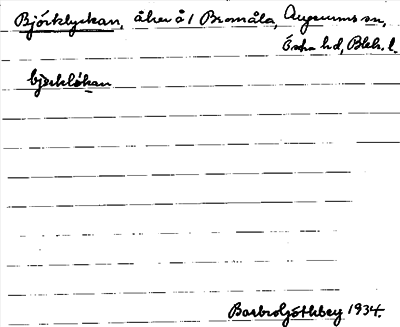 Björklyckan, åker å 1 Bromåla, Augerums sn,
Östra hd, Blek. l.
bjœrklökan
Barbro Götlberg 1934.